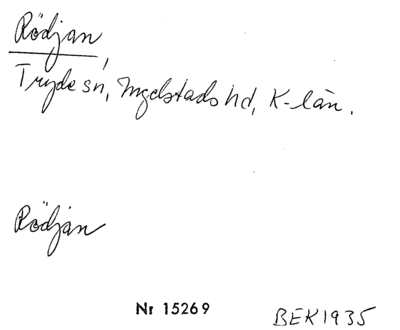 Rödjan,
Tryde sn, Ingelstads hd, K-län.
Rödjan
Nr 15269 BEK1935